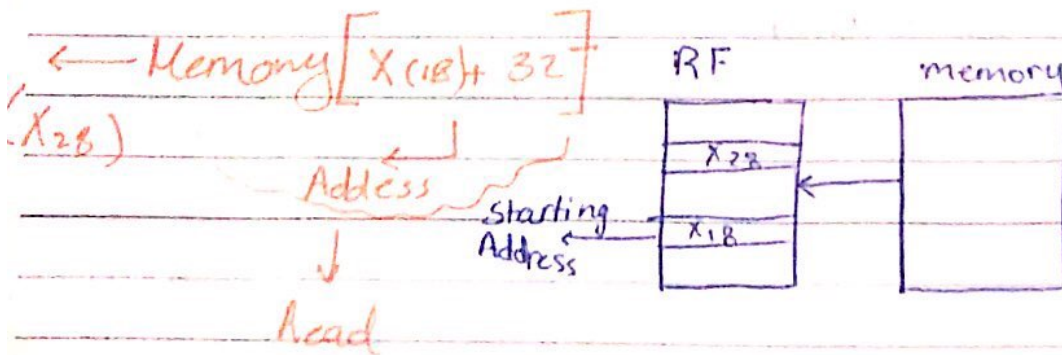 ← Memory[X(18)+ 32]
(X28)
Address
Read
RF
memory
X28
X18
Starting
Address